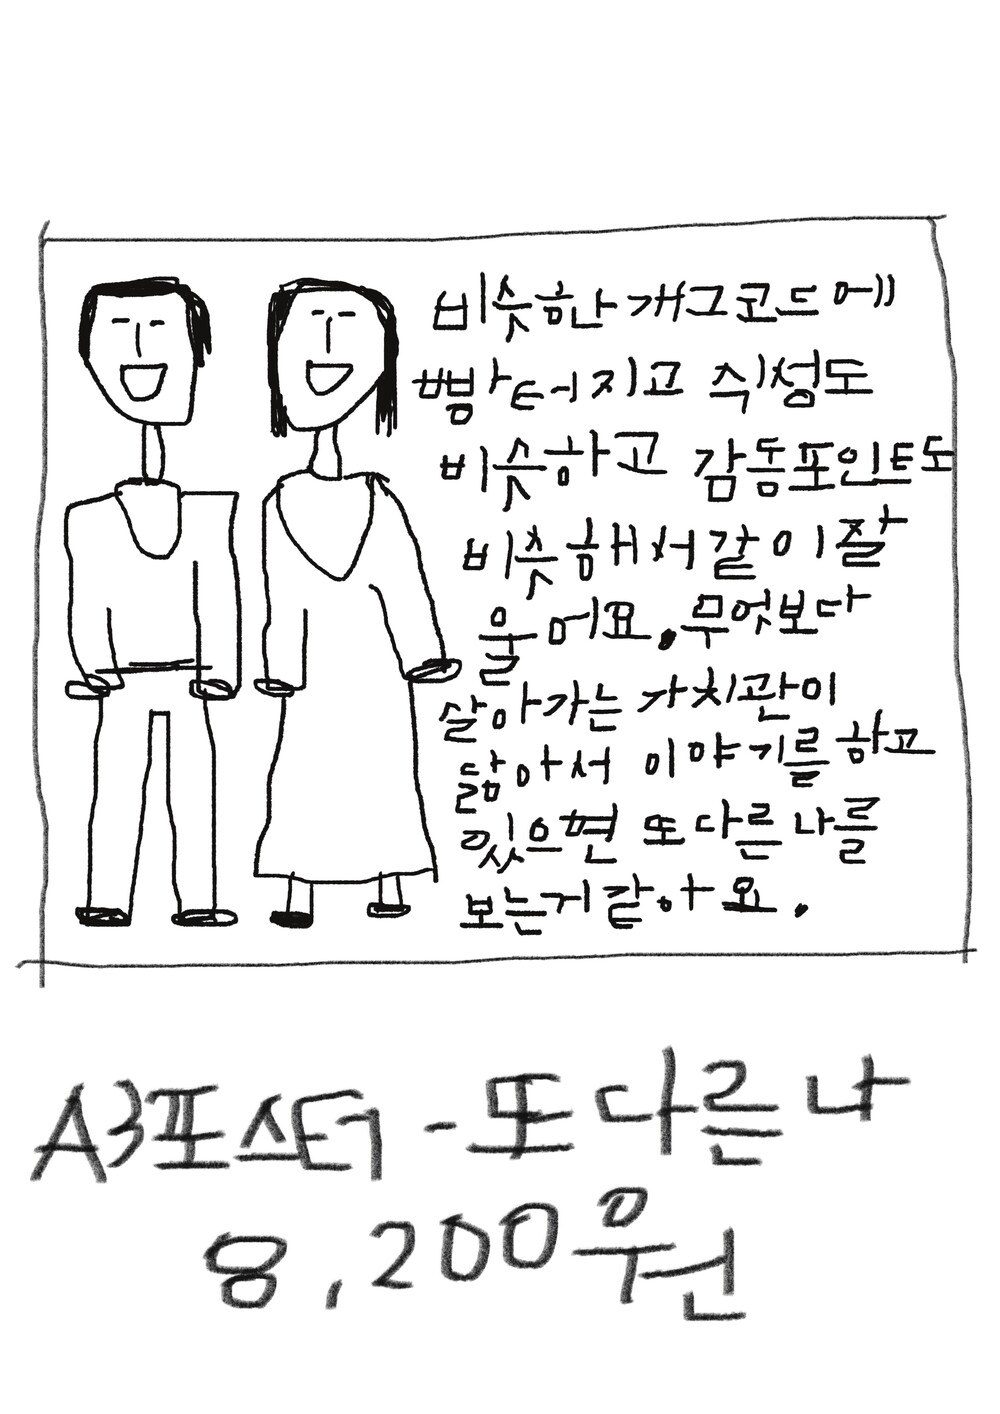 비슷한 개그코드에
빵 터지고 식성도
비슷하고 감동포인트도
비슷해서 같이 잘
울어요. 무엇보다
살아가는 가치관이
닮아서 이야기를 하고
있으면 또 다른 나를
보는거 같아요.
A3포스터 - 또 다른 나
8,200원